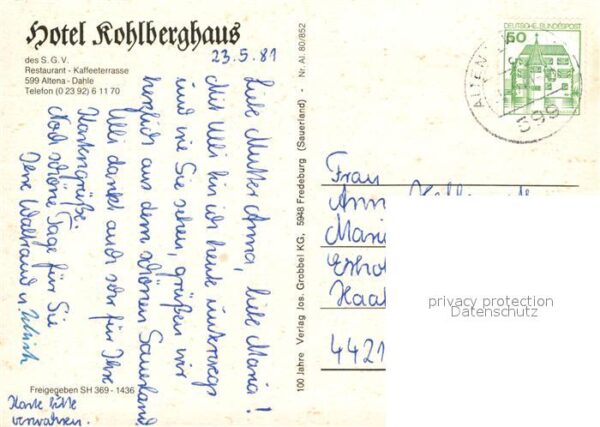 Hotel Kohlberghaus
des S. G. V.
Restaurant - Kaffeeterrasse
599 Altena - Dahle
Telefon (0 23 92) 6 11 70
23.5.81
Liebe Mutter Anna, liebe Maria!
Mit Ulli bin ich heute unterwegs
und wie Sie sehen, grüßen wir
herzlich aus dem schönen Sauerland
Ulli dankt auch sehr für Ihre
Kartengrüße.
Noch schöne Tage für Sie
Ihre Waltraud u. Ulrich
Freigegeben SH 369 - 1436
Karte bitte
verwahren.
100 Jahre Verlag Jos. Grobbel KG, 5948 Fredeburg (Sauerland) - Nr. Al. 80/852
DEUTSCHE BUNDESPOST
50
ALTENA
599
Frau
Ann
Mari
Erho
Haa
4421
privacy protection
Datenschutz